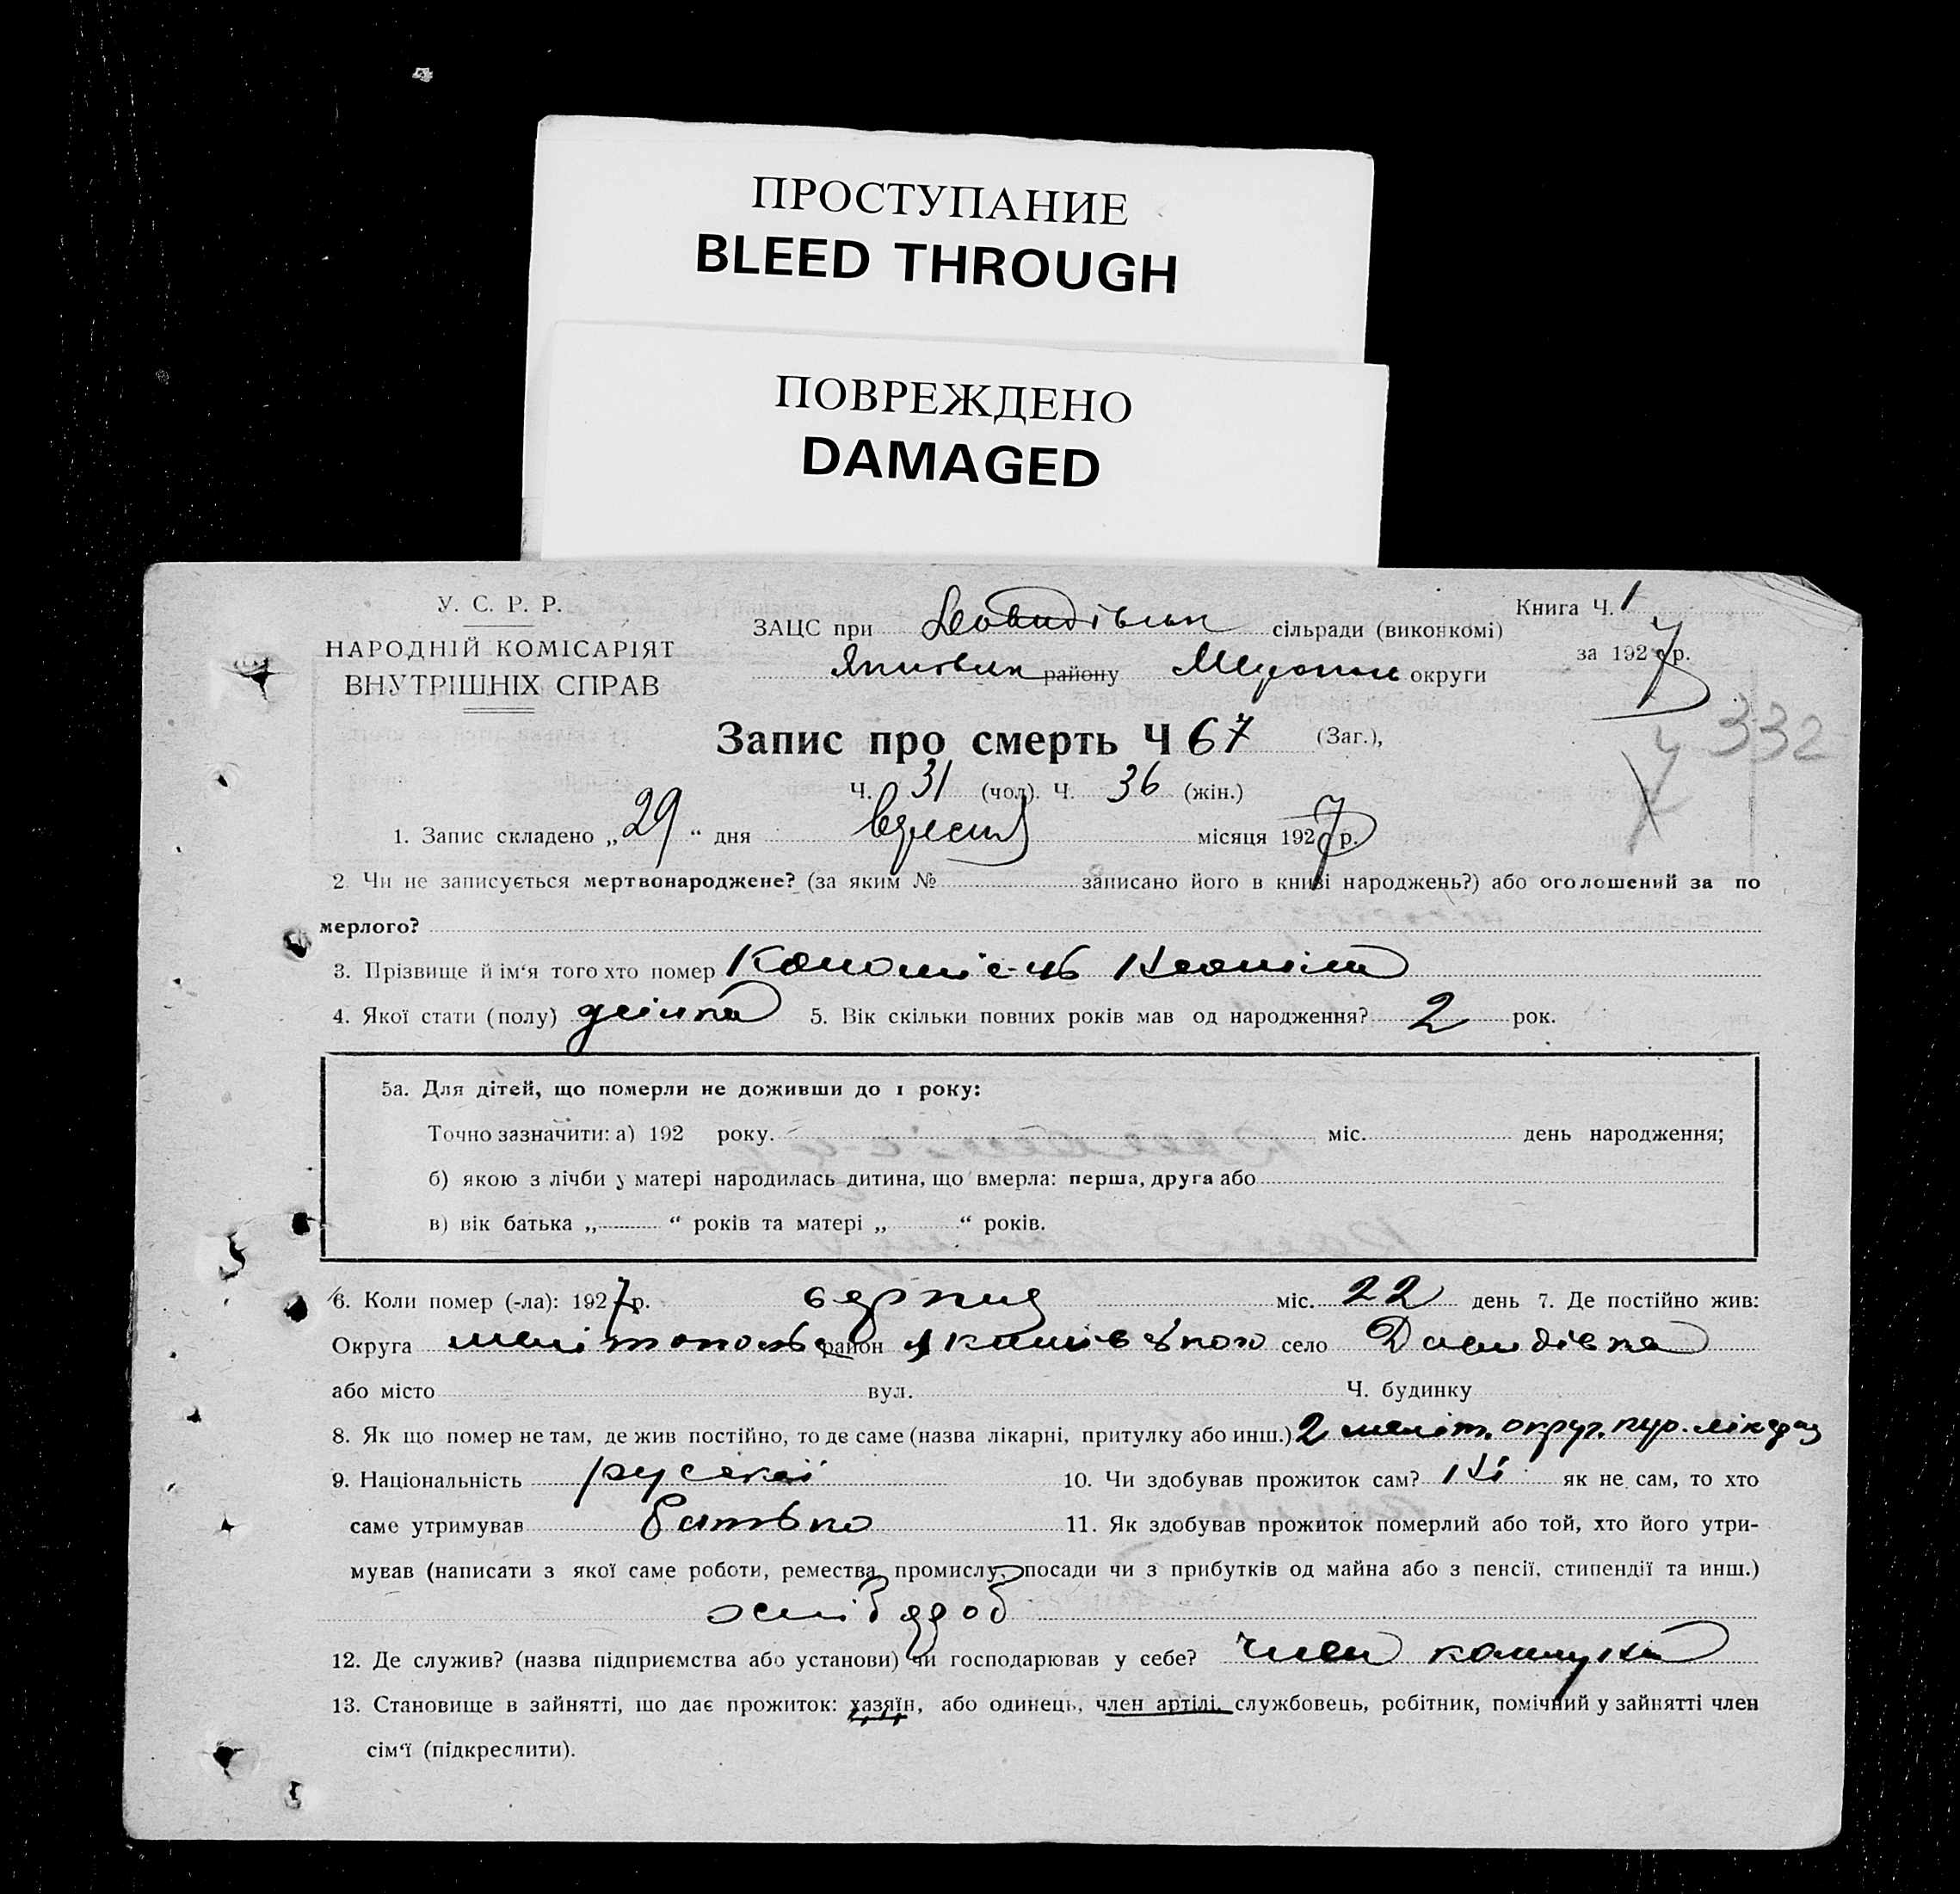 ПРОСТУПАНИЕ
BLEED THROUGH
ПОВРЕЖДЕНО
DAMAGED
У. С. Р. Р.
НАРОДНІЙ КОМІСАРІЯТ
ВНУТРІШНІХ СПРАВ
Книга Ч. 1
ЗАЦС при сільради (виконкомі)
за 1927 р.
району округи
332
Запис про смерть Ч 67 (Заг.),
Ч. 31 (чол). Ч. 36 (жін.)
1. Запис складено „29“ дня вересня місяця 1927 р.
2. Чи не записується мертвонароджене? (за яким № записано його в книзі народжень?) або оголошений за по
мерлого?
3. Прізвище й ім'я того хто померл
4. Якої стати (полу) 5. Вік скільки повних років мав од народження? 2 рок.
5а. Для дітей, що померли не доживши до 1 року:
Точно зазначити: а) 192 року. міс. день народження;
б) якою з лічби у матері народилась дитина, що вмерла: перша, друга або
в) вік батька „ “ років та матері „ “ років.
6. Коли помер (-ла): 1927 р. серпня міс. 22 день 7. Де постійно жив:
Округа район село Давидівка
або місто вул. Ч. будинку
8. Як що помер не там, де жив постійно, то де саме (назва лікарні, притулку або инш.) 2 меліт. округ.
9. Національність руської 10. Чи здобував прожиток сам? Ні як не сам, то хто
саме утримував батько 11. Як здобував прожиток померлий або той, хто його утри-
мував (написати з якої саме роботи, ремества, промислу, посади чи з прибутків од майна або з пенсії, стипендії та инш.)
12. Де служив? (назва підприємства або установи) чи господарював у себе? член комуни
13. Становище в зайнятті, що дає прожиток: хазяїн, або одинець, член артілі, службовець, робітник, помічний у зайнятті член
сім'ї (підкреслити).